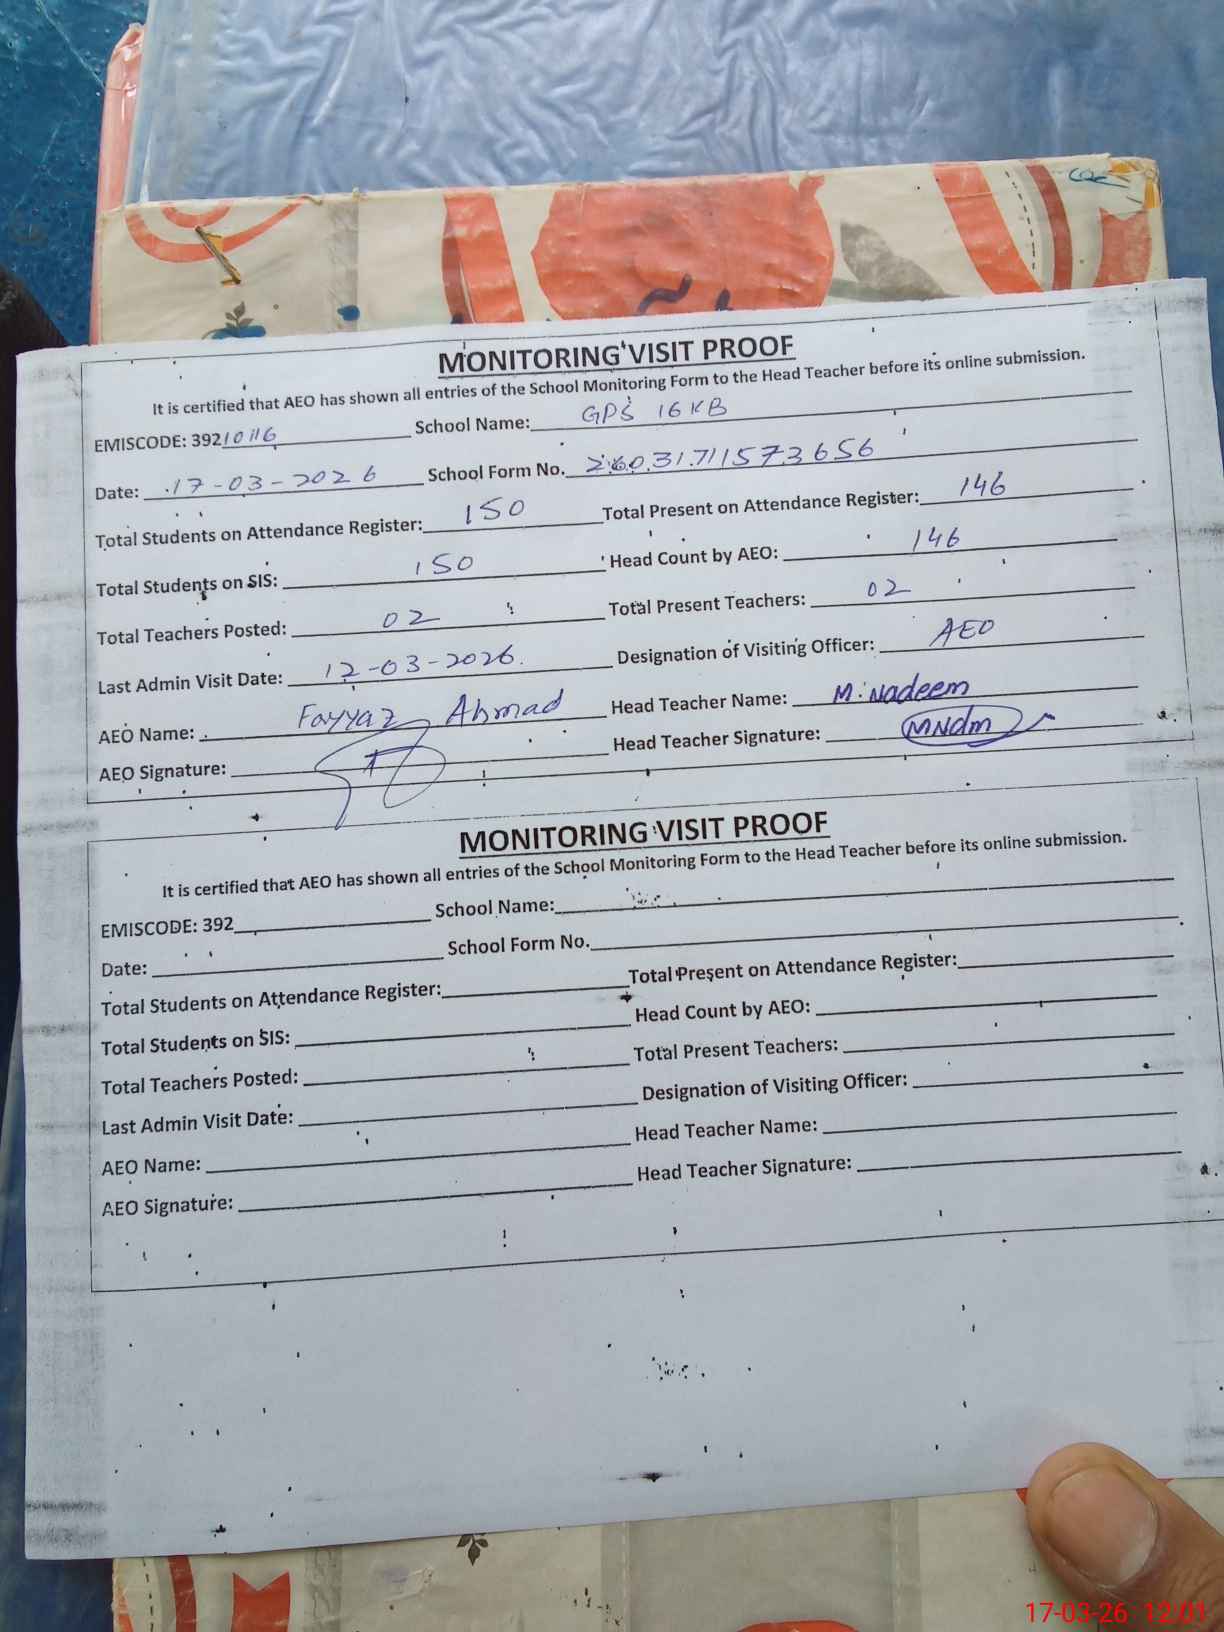 MONITORING VISIT PROOF
It is certified that AEO has shown all entries of the School Monitoring Form to the Head Teacher before its online submission.
EMISCODE: 39210116 School Name: GPS 16 KB
Date: 17-03-2026 School Form No. 26031711573656
Total Students on Attendance Register: 150 Total Present on Attendance Register: 146
Total Students on SIS: 150 Head Count by AEO: 146
Total Teachers Posted: 02 Total Present Teachers: 02
Last Admin Visit Date: 12-03-2026. Designation of Visiting Officer: AEO
AEO Name: Fayyaz Ahmad Head Teacher Name: M. Nadeem
AEO Signature: Head Teacher Signature: MNdm
MONITORING VISIT PROOF
It is certified that AEO has shown all entries of the School Monitoring Form to the Head Teacher before its online submission.
EMISCODE: 392 School Name:
Date: School Form No.
Total Students on Attendance Register: Total Present on Attendance Register:
Total Students on SIS: Head Count by AEO:
Total Teachers Posted: Total Present Teachers:
Last Admin Visit Date: Designation of Visiting Officer:
AEO Name: Head Teacher Name:
AEO Signature: Head Teacher Signature:
17-03-26 12:01